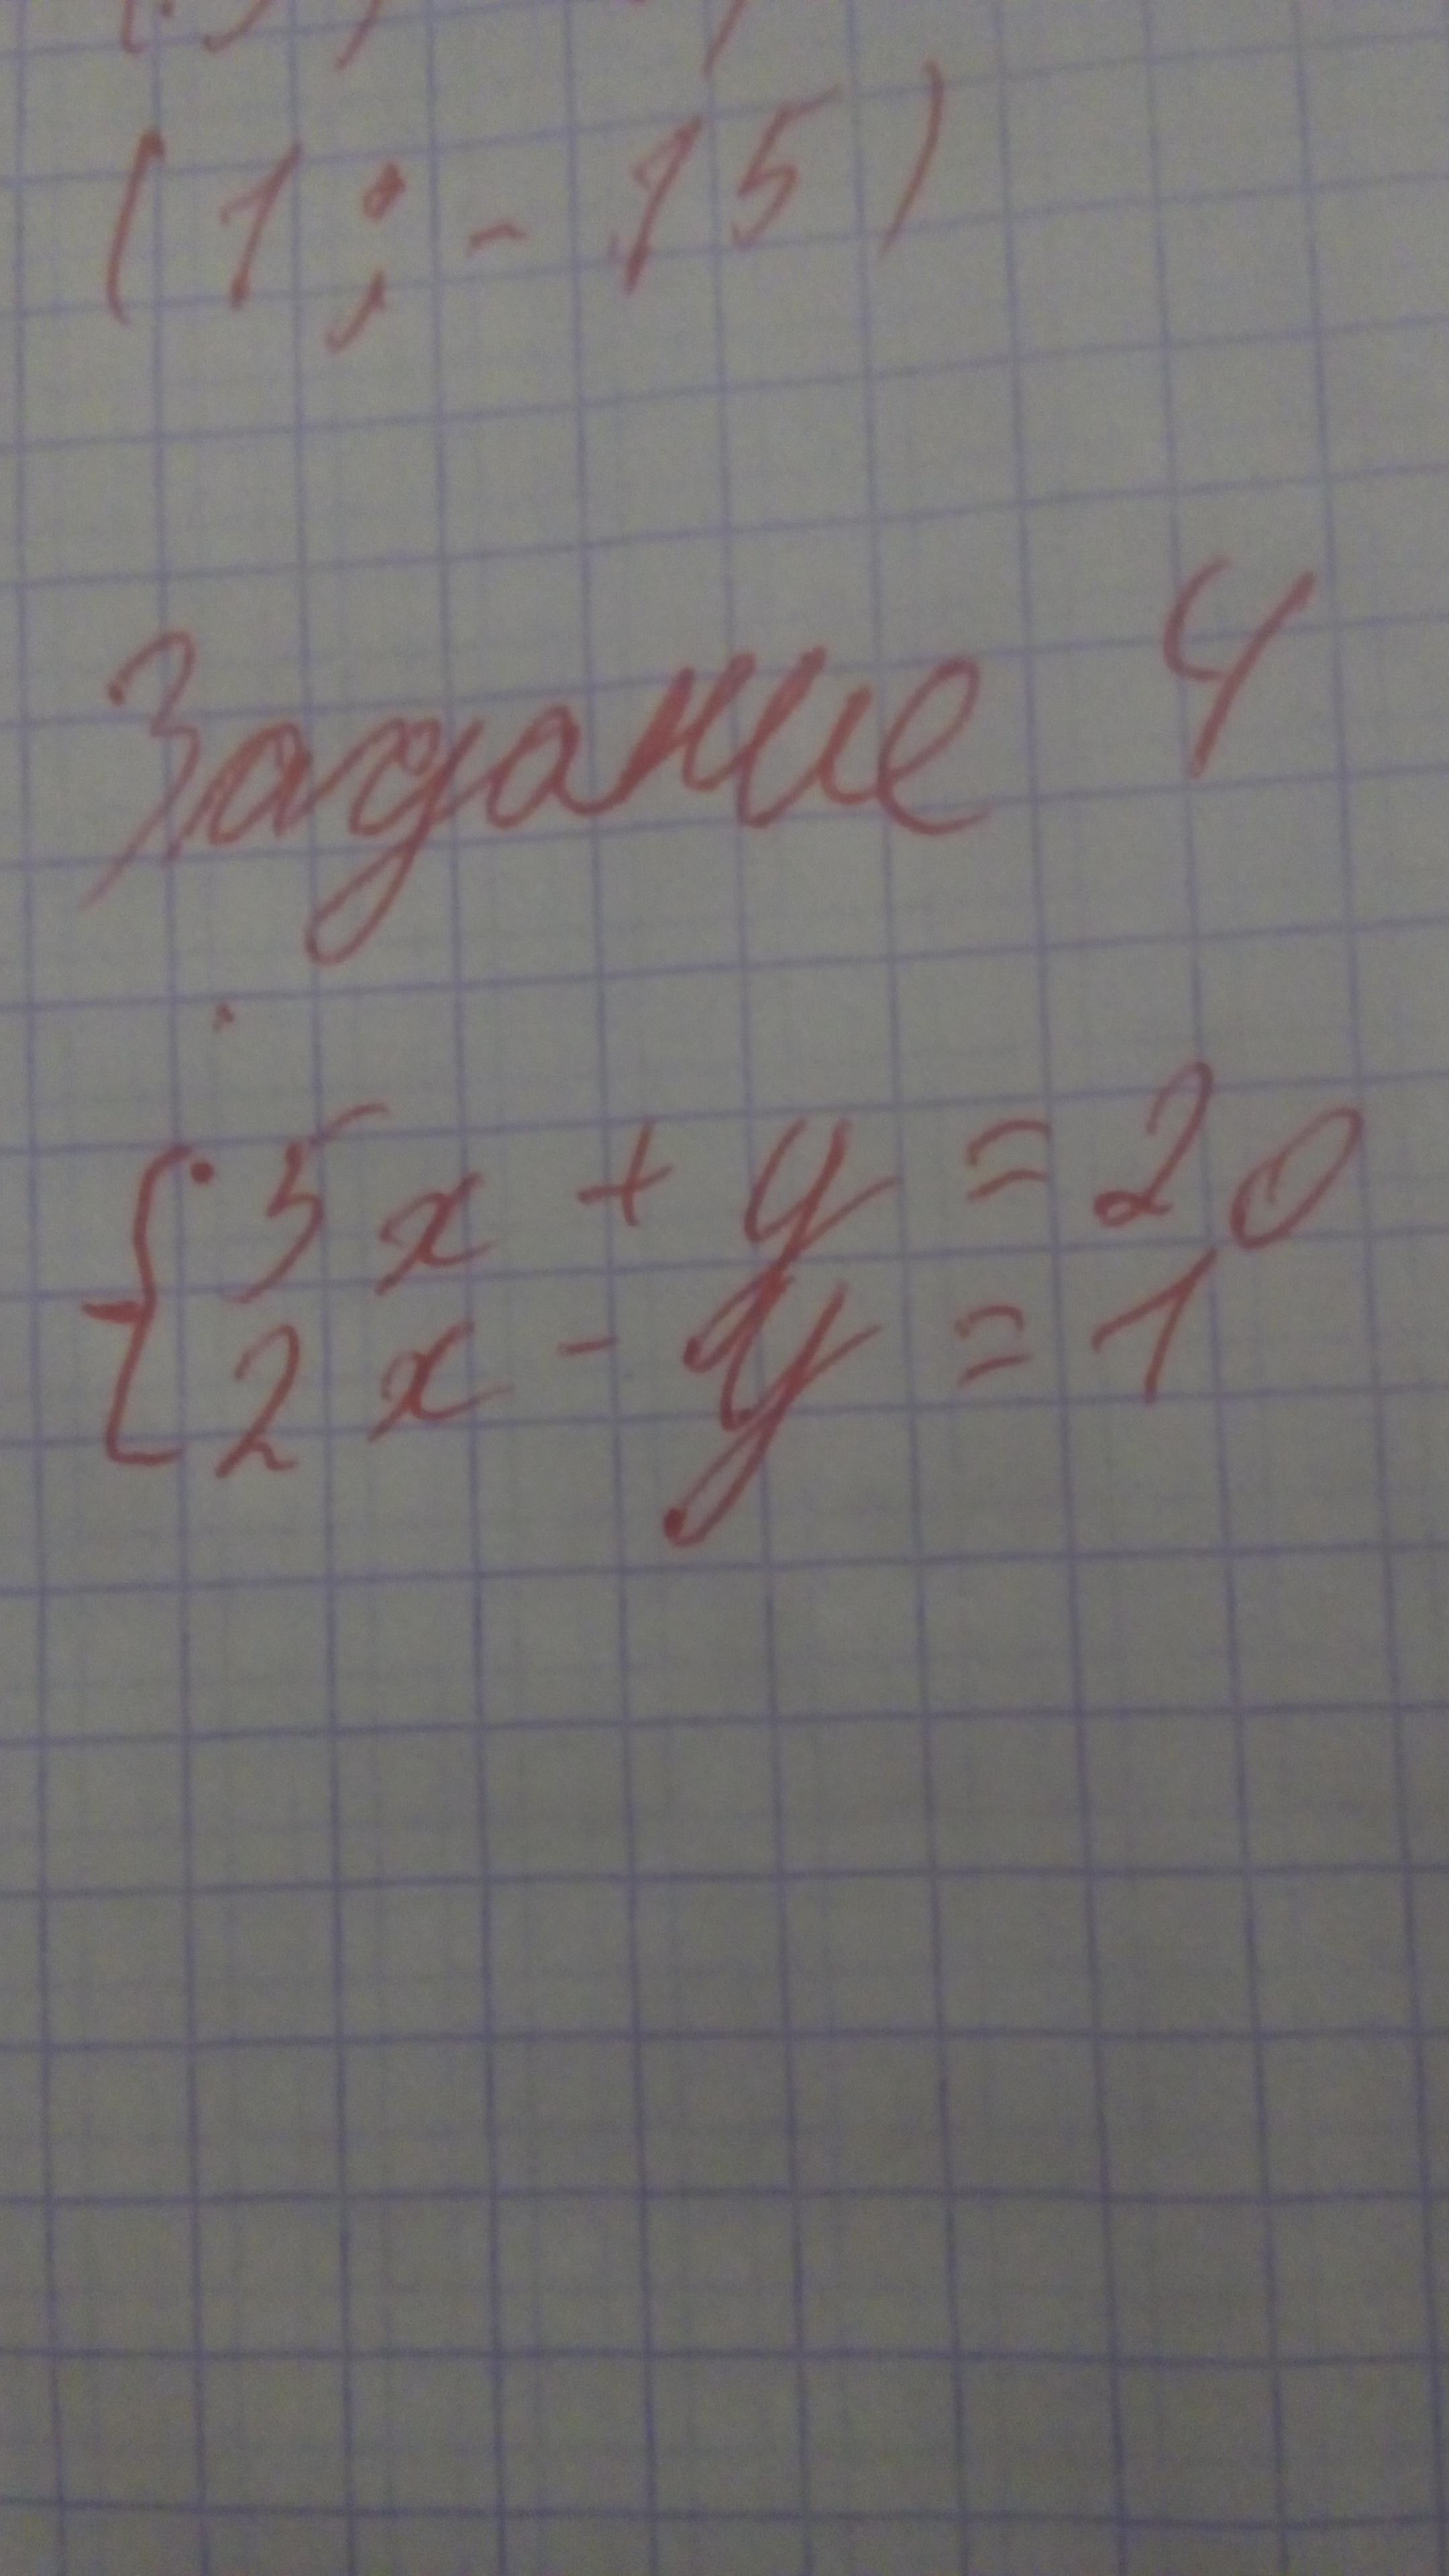 (1; - 15)
Задание 4
{ 5x + y = 20
2x - y = 1